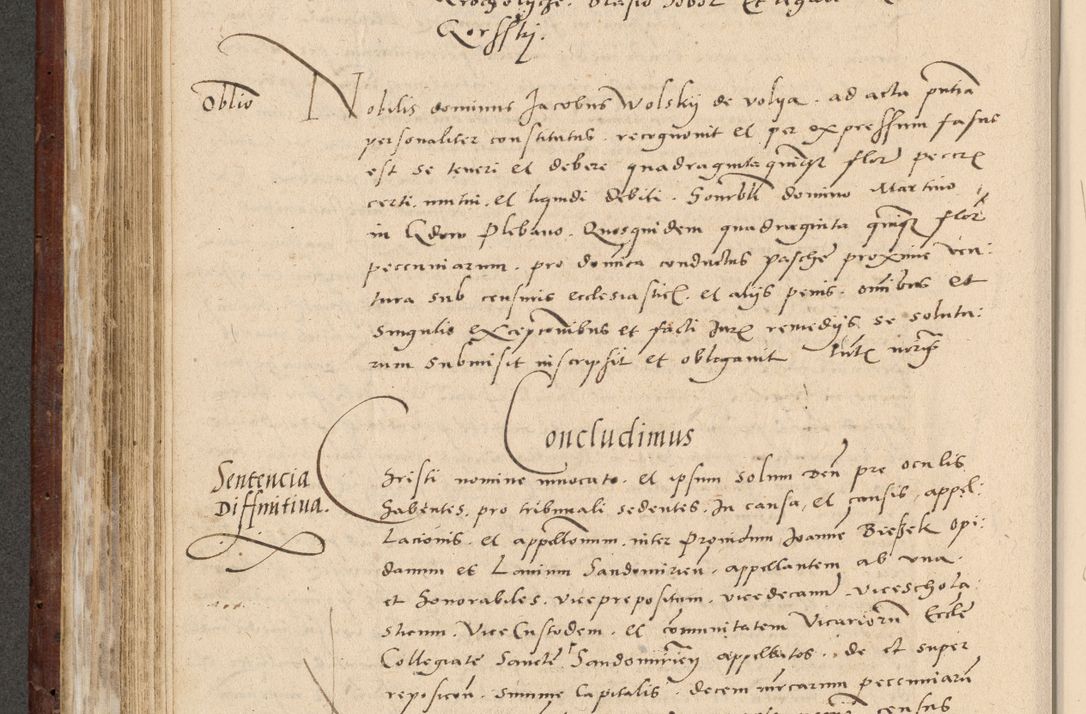 Qorsskj.
Oblio
Nobilis dominus Jacobus Wolskij de volya . ad acta pntia
personaliter constitutus . recognovit et per expressum fassus
est se teneri et debere quadraginta quinqz flor peccrz
certi . mutui . et liquidi debiti . Honorbli domino Martino
in Plebano . Quosquidem quadraginta quinqz flor
pecuniarum . pro domca conductus Pasche proxime ven:
tura sub censuris ecclesiasticz . et alijs penis . omibus et
singulis excepconibus et facti Jurz remedijs se soluta:
rum submisit inscripsit et obligavit
Concludimus
Sentencia
Diffinitiua.
Christi nomine invocato . et ipsum solum Deu pre oculis
habentes . pro tribunali sedentes . In causa, et causis, appel:
Lacionis . et appellonum . inter Providum Joanne Bieszek opi:
danum et Lanium Sandomirien . appellantem ab vna .
et Honorabiles . viceprepositum . vicedecanu . viceschola:
sticum . Vice Custodem . et comunitatem Vicarioru Eccle
Collegiate Sancte Sandomirien appellatos . de et super
reposicon . summe Capitalis . decem mrcarum pecuniaru
census